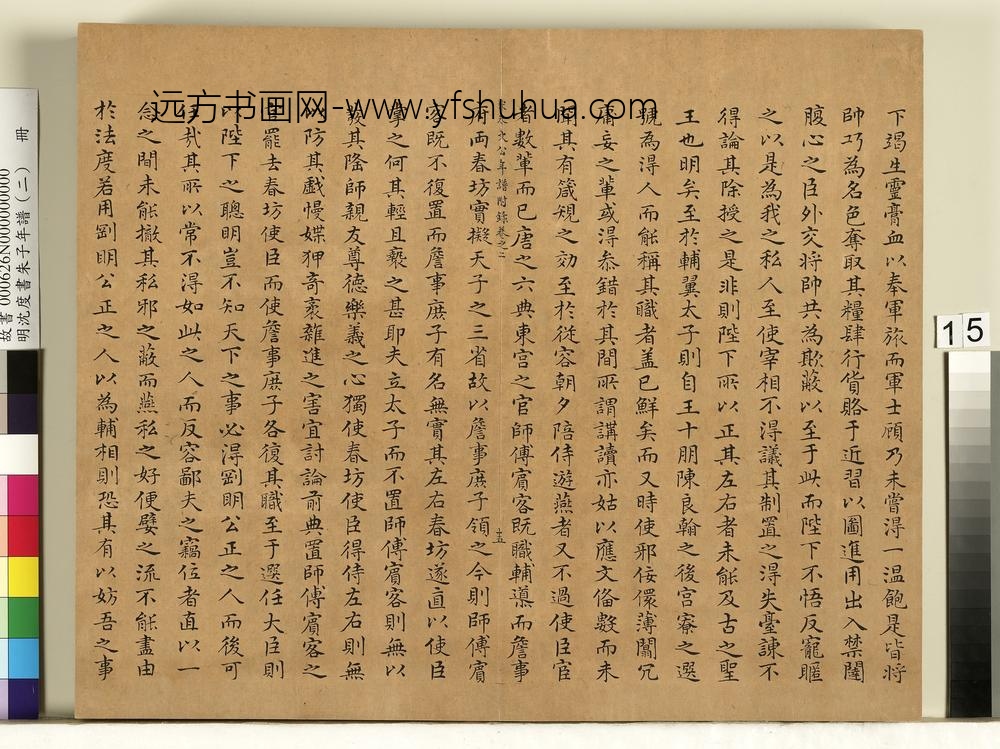 下竭生靈膏血以奉軍旅而軍士顧乃未嘗得一溫飽是皆將
帥巧為名色奪取其糧肆行貨賂于近習以圖進用出入禁闥
腹心之臣外交將帥共為欺蔽以至于此而陛下不悟反寵暱
之以是為我之私人至使宰相不得議其制置之得失臺諫不
得論其除授之是非則陛下所以正其左右者未能及古之聖
王也明矣至於輔翼太子則自王十朋陳良翰之後宮寮之選
號為得人而能稱其職者蓋已鮮矣而又時使邪佞儇薄闒冗
庸妄之輩或得叅錯於其間所謂講讀亦姑以應文俻數而未
聞其有箴規之効至於從容朝夕陪侍遊燕者又不過使臣宦
者數輩而已唐之六典東宮之官師傅賓客既職輔導而詹事
文公年譜附錄卷之二
十五
府兩春坊實擬天子之三省故以詹事庶子領之今則師傅賓
客既不復置而詹事庶子有名無實其左右春坊遂直以使臣
掌之何其輕且褻之甚耶夫立太子而不置師傅賓客則無以
發其隆師親友尊德樂義之心獨使春坊使臣得侍左右則無
以防其戲慢媟狎奇袤雜進之害宜討論前典置師傅賓客之
官罷去春坊使臣而使詹事庶子各復其職至于選任大臣則
以陛下之聰明豈不知天下之事必得剛明公正之人而後可
任哉其所以常不得如此之人而反容鄙夫之竊位者直以一
念之間未能撤其私邪之蔽而燕私之好便嬖之流不能盡由
於法度若用剛明公正之人以為輔相則恐其有以妨吾之事
远方书画网-www.yfshuhua.com
故書 000626N000000000
冊
明沈度書朱子年譜(二)
15